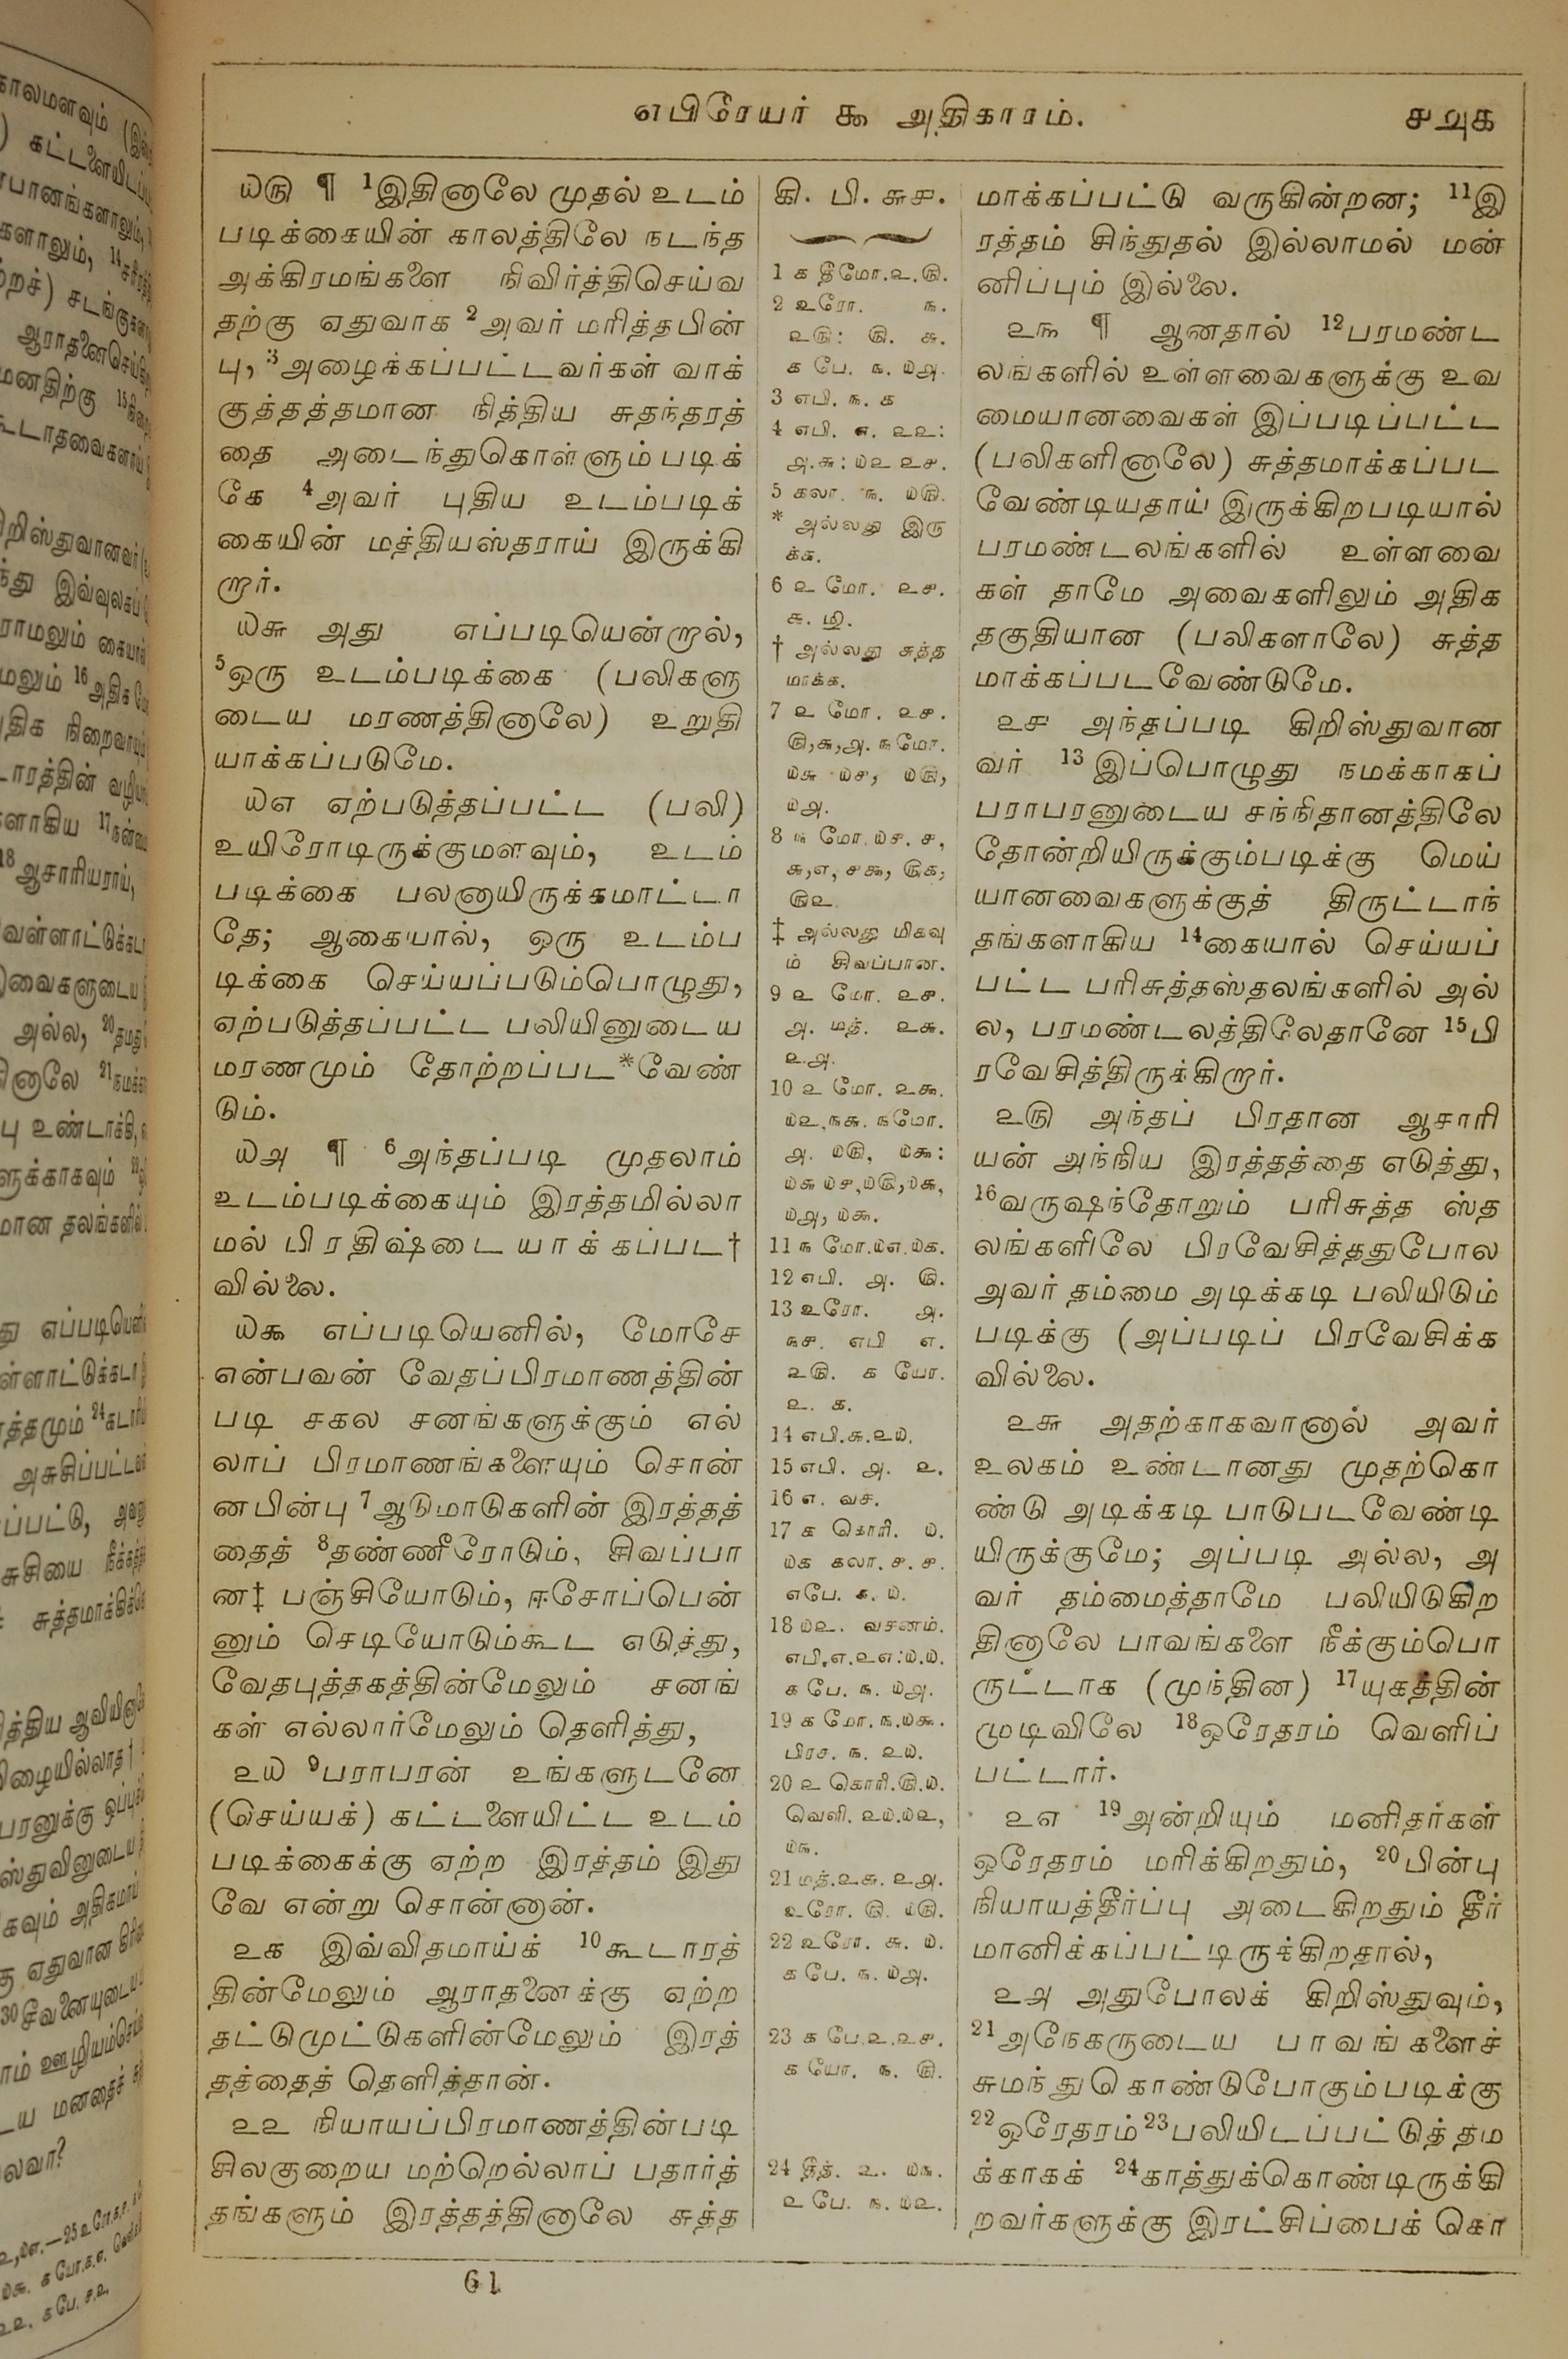 எபிரேயர் ௯ அதிகாரம்.
௪௮௧
௰௫ ¶ 1இதினாலே முதல் உடம்
படிக்கையின் காலத்திலே நடந்த
அக்கிரமங்களை நிவிர்த்திசெய்வ
தற்கு ஏதுவாக 2அவர் மரித்தபின்
பு, 3அழைக்கப்பட்டவர்கள் வாக்
குத்தத்தமான நித்திய சுதந்தரத்
தை அடைந்துகொள்ளும்படிக்
கே 4அவர் புதிய உடம்படிக்
கையின் மத்தியஸ்தராய் இருக்கி
றார்.
௰௬ அது எப்படியென்றால்,
5ஒரு உடம்படிக்கை (பலிகளு
டைய மரணத்தினாலே) உறுதி
யாக்கப்படுமே.
௰௭ ஏற்படுத்தப்பட்ட (பலி)
உயிரோடிருக்குமளவும், உடம்
படிக்கை பலனாயிருக்கமாட்டா
தே; ஆகையால், ஒரு உடம்ப
டிக்கை செய்யப்படும்பொழுது,
ஏற்படுத்தப்பட்ட பலியினுடைய
மரணமும் தோற்றப்பட*வேண்
டும்.
௰௮ ¶ 6அந்தப்படி முதலாம்
உடம்படிக்கையும் இரத்தமில்லா
மல் பிரதிஷ்டையாக்கப்பட†
வில்லை.
௰௯ எப்படியெனில், மோசே
என்பவன் வேதப்பிரமாணத்தின்
படி சகல சனங்களுக்கும் எல்
லாப் பிரமாணங்களையும் சொன்
னபின்பு 7ஆடுமாடுகளின் இரத்தத்
தைத் 8தண்ணீரோடும், சிவப்பா
ன‡ பஞ்சியோடும், ஈசோப்பென்
னும் செடியோடும்கூட எடுத்து,
வேதபுத்தகத்தின்மேலும் சனங்
கள் எல்லார்மேலும் தெளித்து,
௨௰ 9பராபரன் உங்களுடனே
(செய்யக்) கட்டளையிட்ட உடம்
படிக்கைக்கு ஏற்ற இரத்தம் இது
வே என்று சொன்னான்.
௨௧ இவ்விதமாய்க் 10கூடாரத்
தின்மேலும் ஆராதனைக்கு ஏற்ற
தட்டுமுட்டுகளின்மேலும் இரத்
தத்தைத் தெளித்தான்.
௨௨ நியாயப்பிரமாணத்தின்படி
சிலகுறைய மற்றெல்லாப் பதார்த்
தங்களும் இரத்தத்தினாலே சுத்த
கி. பி. ௬௪.
1 ௧ தீமோ.௨.௫.
2 உரோ. ௩.
௨௫: ௫. ௬.
௧ பே. ௩. ௰௮.
3 எபி. ௩. ௧
4 எபி. ௭. ௨௨:
௮.௬: ௰௨ ௨௪.
5 கலா. ௩. ௰௫.
* அல்லது இரு
க்க.
6 ௨ மோ. ௨௪.
௬. மு.
† அல்லது சுத்த
மாக்க.
7 ௨ மோ. ௨௪.
௫,௬,௮. ௩மோ.
௰௬ ௰௪, ௰௫,
௰௮.
8 ௩ மோ.௰௪. ௪,
௬,௭, ௪௯, ௫௧,
௫௨.
‡ அல்லது மிகவு
ம் சிவப்பான.
9 ௨ மோ. ௨௪.
௮. மத். ௨௬.
௨.௮.
10 ௨ மோ. ௨௯.
௰௨,௩௬. ௩மோ.
௮. ௰௫, ௰௯:
௰௬ ௰௪,௰௫,௰௬,
௰௮, ௰௯.
11 ௩ மோ.௰௭.௰௧.
12 எபி. ௮. ௫.
13 உரோ. ௮.
௩௪. எபி ௭.
௨௫. ௧ யோ.
௨. ௧.
14 எபி.௬.௨௰.
15 எபி. ௮. ௨.
16 ௭. வச.
17 ௧ கொரி. ௰.
௰௧ கலா. ௪. ௪.
எபே. ௧. ௰.
18 ௰௨. வசனம்.
எபி.௭.௨௭:௰.௰.
௧ பே. ௩. ௰௮.
19 ௧ மோ.௩.௰௯.
பிரச. ௩. ௨௰.
20 ௨ கொரி.௫.௰.
வெளி. ௨௰.௰௨,
௰௩.
21 மத்.௨௬. ௨௮.
உரோ. ௫. ௰௫.
22 உரோ. ௬. ௰.
௧ பே. ௩. ௰௮.
23 ௧ பே.௨.௨௪.
௧ யோ. ௩. ௫.
24 தீத். ௨. ௰௩.
௨ பே. ௩. ௰௨.
மாக்கப்பட்டு வருகின்றன; 11இ
ரத்தம் சிந்துதல் இல்லாமல் மன்
னிப்பும் இல்லை.
௨௩ ¶ ஆனதால் 12பரமண்ட
லங்களில் உள்ளவைகளுக்கு உவ
மையானவைகள் இப்படிப்பட்ட
(பலிகளினாலே) சுத்தமாக்கப்பட
வேண்டியதாய் இருக்கிறபடியால்
பரமண்டலங்களில் உள்ளவை
கள் தாமே அவைகளிலும் அதிக
தகுதியான (பலிகளாலே) சுத்த
மாக்கப்படவேண்டுமே.
௨௪ அந்தப்படி கிறிஸ்துவான
வர் 13இப்பொழுது நமக்காகப்
பராபரனுடைய சந்நிதானத்திலே
தோன்றியிருக்கும்படிக்கு மெய்
யானவைகளுக்குத் திருட்டாந்
தங்களாகிய 14கையால் செய்யப்
பட்ட பரிசுத்தஸ்தலங்களில் அல்
ல, பரமண்டலத்திலேதானே 15பி
ரவேசித்திருக்கிறார்.
௨௫ அந்தப் பிரதான ஆசாரி
யன் அந்நிய இரத்தத்தை எடுத்து,
16வருஷந்தோறும் பரிசுத்த ஸ்த
லங்களிலே பிரவேசித்ததுபோல
அவர் தம்மை அடிக்கடி பலியிடும்
படிக்கு (அப்படிப் பிரவேசிக்க
வில்லை.
௨௬ அதற்காகவானால் அவர்
உலகம் உண்டானது முதற்கொ
ண்டு அடிக்கடி பாடுபடவேண்டி
யிருக்குமே; அப்படி அல்ல, அ
வர் தம்மைத்தாமே பலியிடுகிற
தினாலே பாவங்களை நீக்கும்பொ
ருட்டாக (முந்தின) 17யுகத்தின்
முடிவிலே 18ஒரேதரம் வெளிப்
பட்டார்.
௨௭ 19அன்றியும் மனிதர்கள்
ஒரேதரம் மரிக்கிறதும், 20பின்பு
நியாயத்தீர்ப்பு அடைகிறதும் தீர்
மானிக்கப்பட்டிருக்கிறதால்,
௨௮ அதுபோலக் கிறிஸ்துவும்,
21அநேகருடைய பாவங்களைச்
சுமந்துகொண்டுபோகும்படிக்கு
22ஒரேதரம் 23பலியிடப்பட்டுத் தம
க்காகக் 24காத்துக்கொண்டிருக்கி
றவர்களுக்கு இரட்சிப்பைக் கொ
61